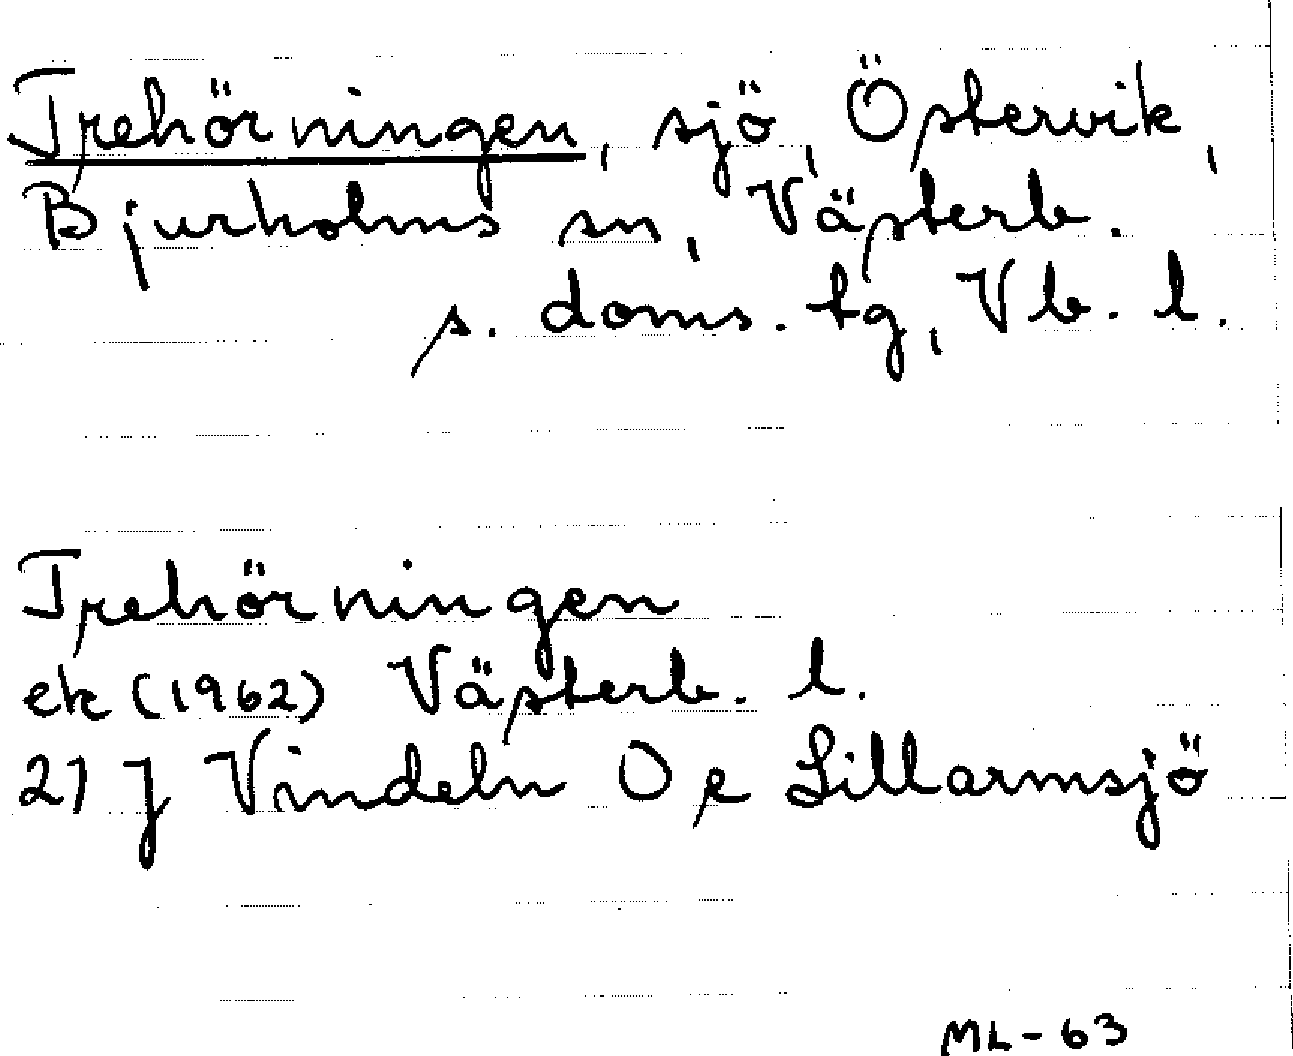 Trehörningen, sjö, Östervik,
Bjurholms sn, Västerb.
s. doms. tg, Vb. l.
Trehörningen
ek (1962) Västerb. l.
21 J Vindeln Öe Lillarmsjö
ML-63